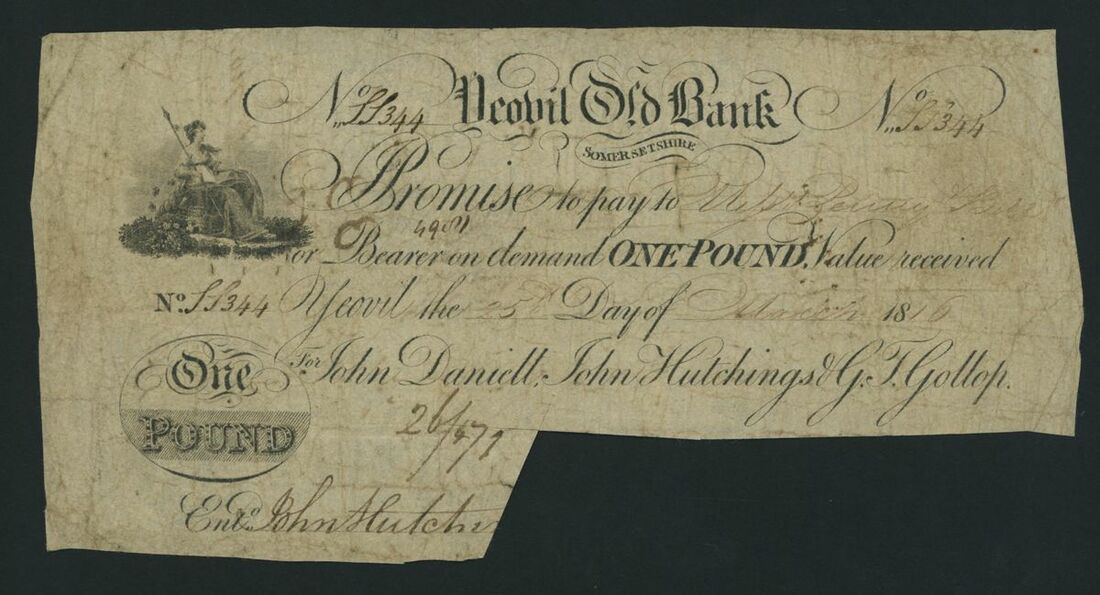 No. SS344 Yeovil Old Bank No. SS344
SOMERSETSHIRE
I Promise to pay to
4981
or Bearer on demand ONE POUND, Value received
No. SS344 Yeovil the 25th Day of March 1816
For John Daniell, John Hutchings & G. T. Gollop.
One
POUND
Entd. John Hutchin